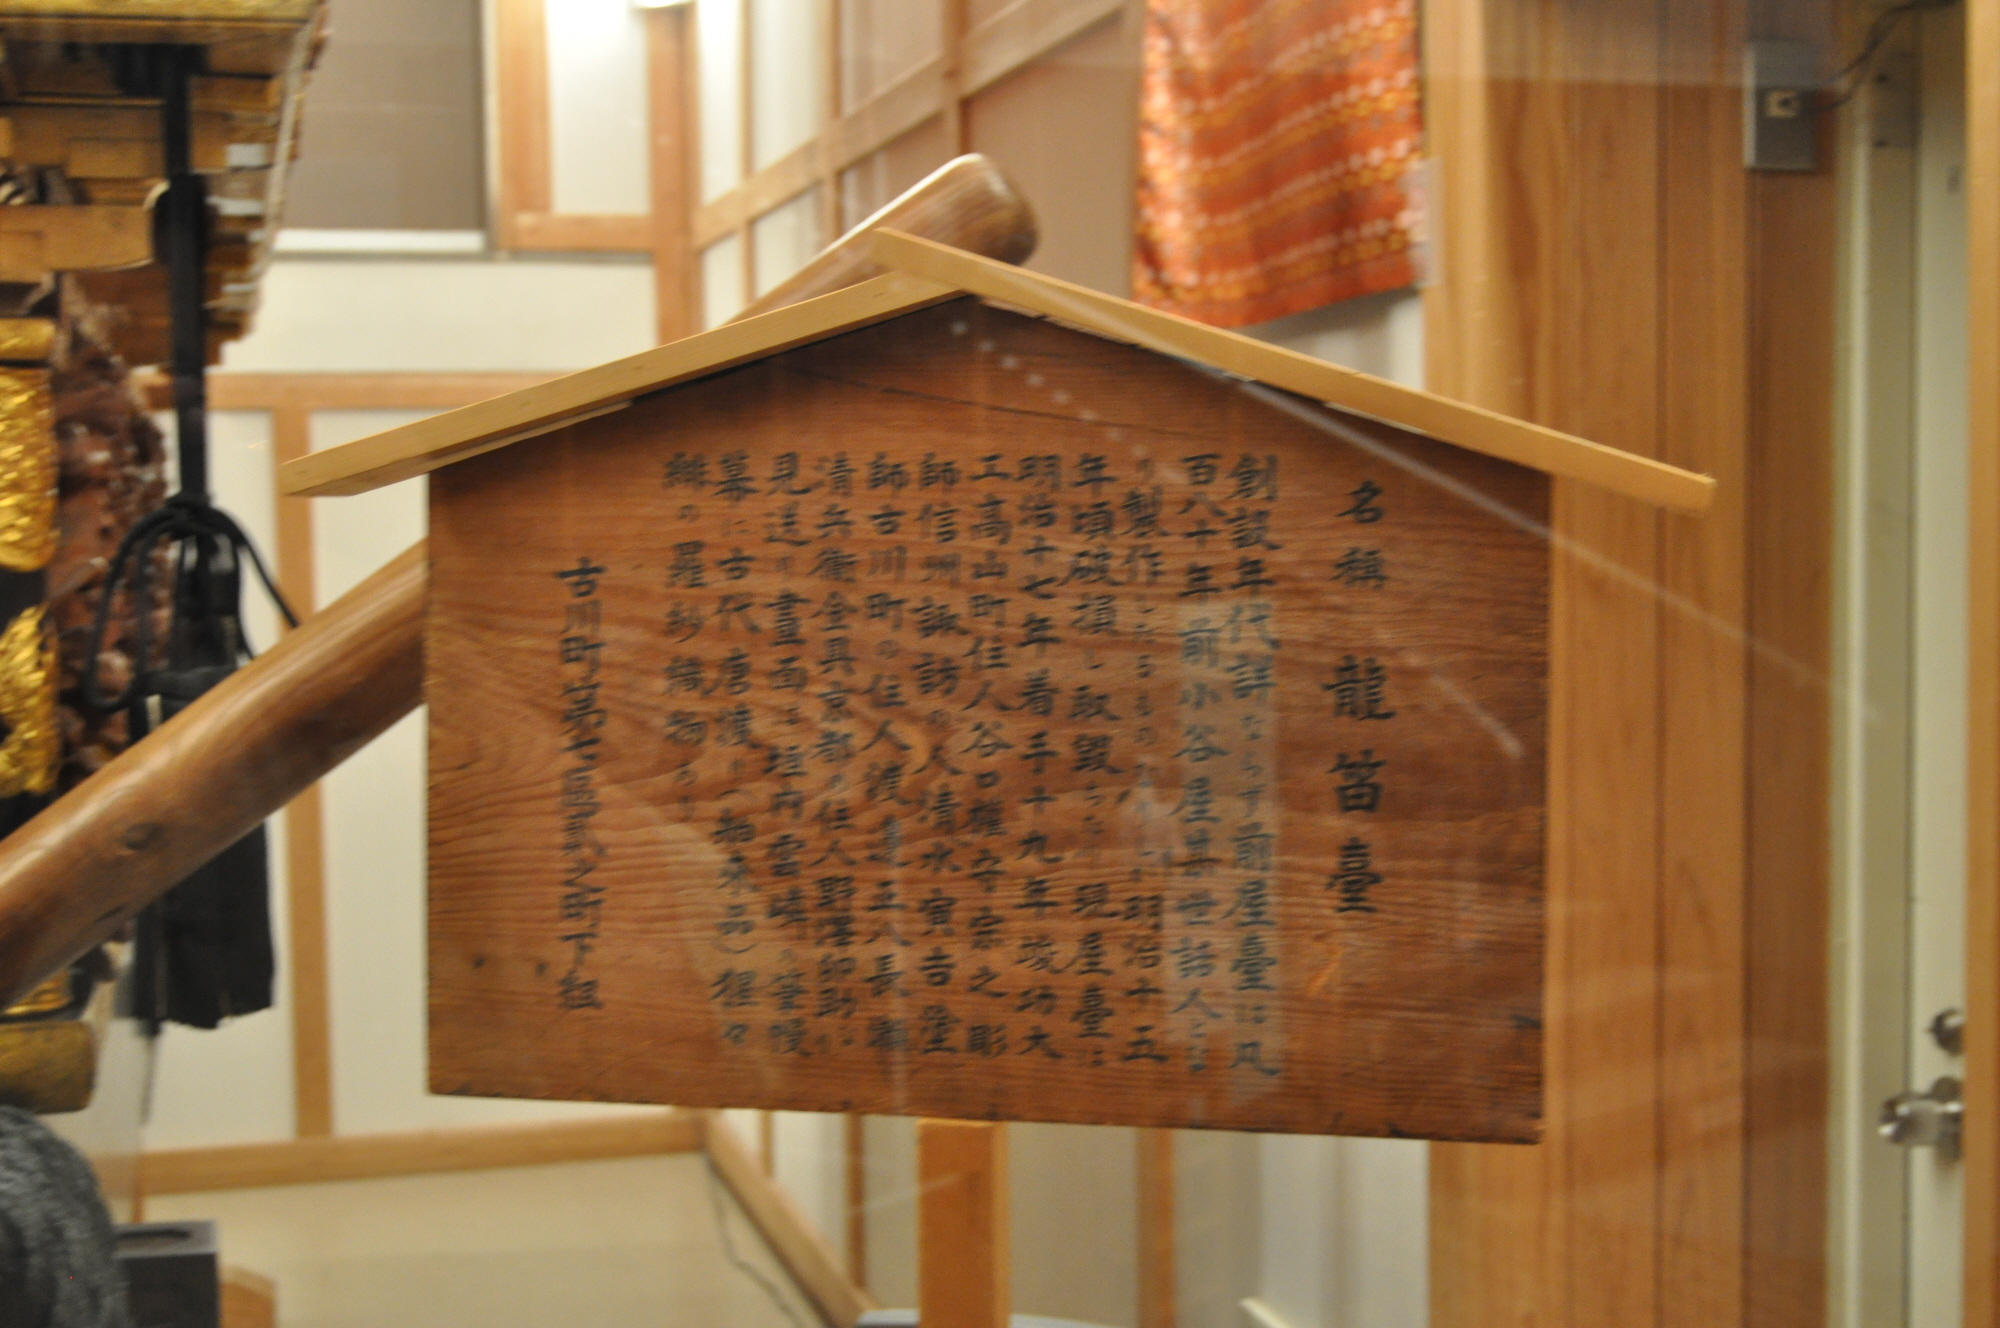 名稱 龍笛臺
創設年代詳ならず前屋臺は凡
百八十年前小谷屋某世話人とな
り製作したるもの 明治十五
年頃破損し取毀ちたり現屋臺は
明治十七年着手十九年竣功大
工高山町住人谷口權守宗之彫
師信州諏訪の人清水寅吉塗
師古川町の住人渡邊正八長輝
清兵衞金具京都の住人野澤卯助に
見送の畫面は垣内雲嶙の筆幔
幕に古代唐渡り(舶來品)猩々
緋の羅紗織物なり
古川町第七區貳之町下組